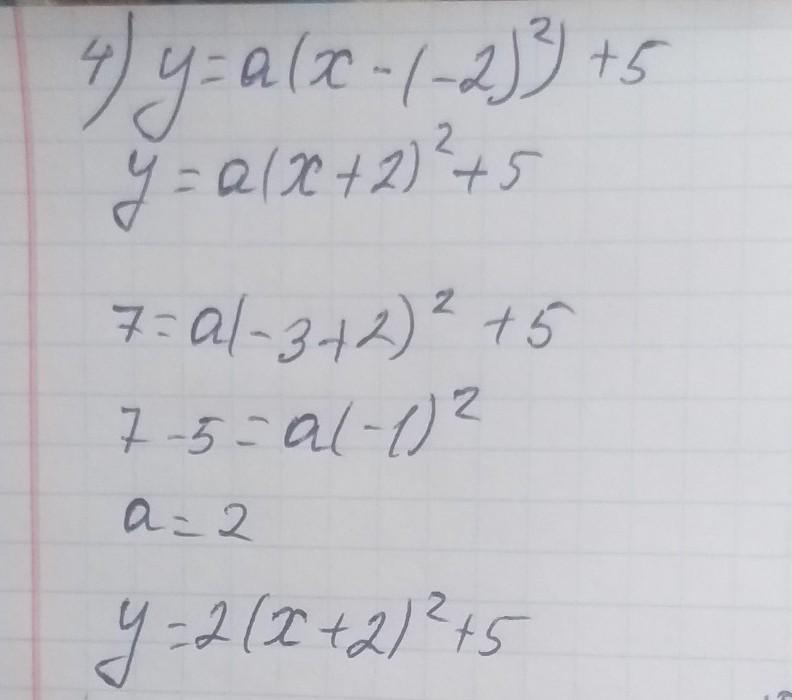 4) y=a(x-(-2)²)+5
y=a(x+2)²+5
7=a(-3+2)²+5
7-5=a(-1)²
a=2
y=2(x+2)²+5